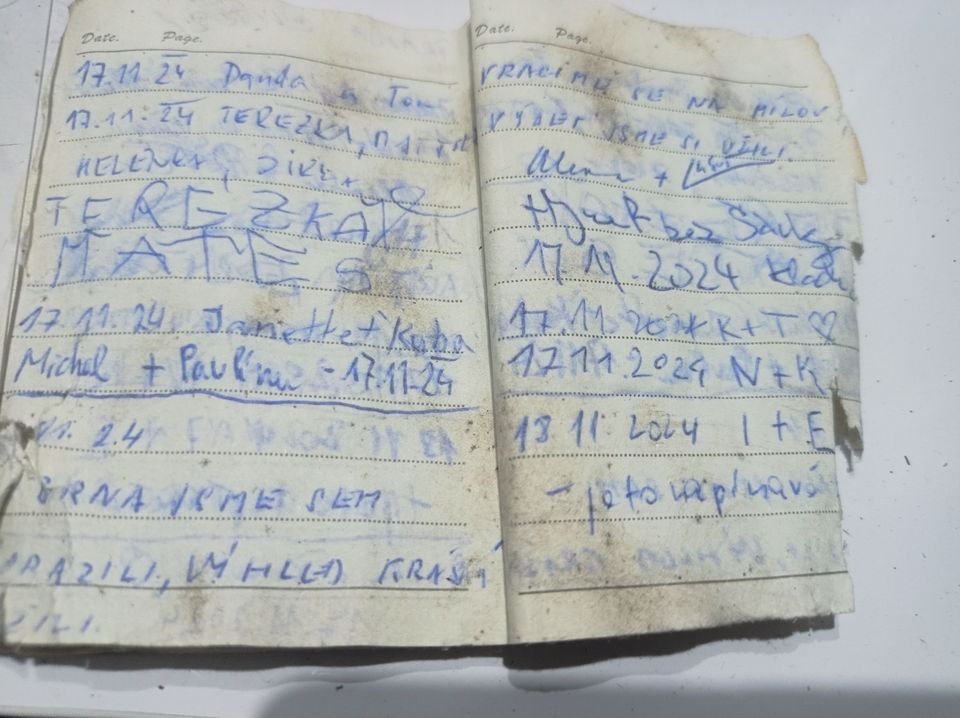 Date. Page.
17.11.24 Danda a Tom
17.11.24 TEREZKA,
HELENKA,
TEREZKA
MATES
17.11.24 Janette + Kuba
Michal + Pavlína - 17.11.24
11. 24
BRNA JSME SEM
RAZILI, VÝHLED KRÁSN
Date. Page.
VRACÍME SE NA
VÝLET JSME SI UŽILI.
+
Hynek bez
17.11.2024
17.11 2024 K+T ♡
17.11.2024 N+K
18 11 2024 I + E
- je to